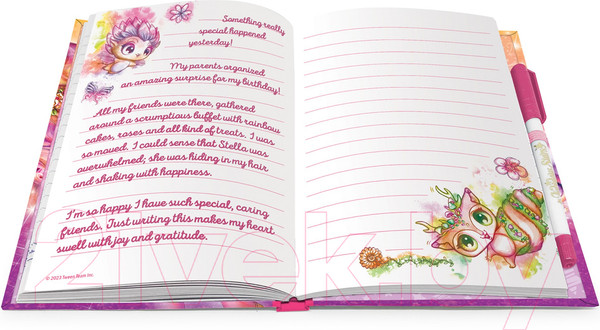 Something really
special happened
yesterday!
My parents organized
an amazing surprise for my birthday!
All my friends were there, gathered
around a scrumptious buffet with rainbow
cakes, roses and all kind of treats. I was
so moved. I could sense that Stella was
overwhelmed; she was hiding in my hair
and shaking with happiness.
I'm so happy I have such special, caring
friends. Just writing this makes my heart
swell with joy and gratitude.
© 2023 Sunny Bunn Inc.
21vek.by